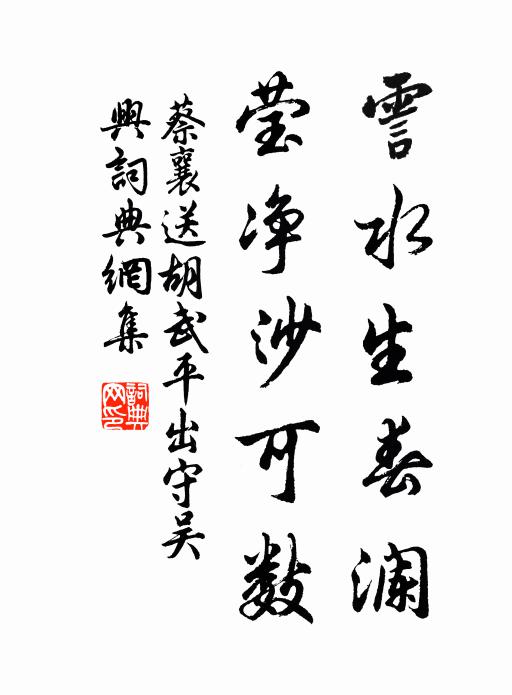 霅水生春澜
莹净沙可数
蔡襄送胡武平出守吴
興詞典網集
詞典网印